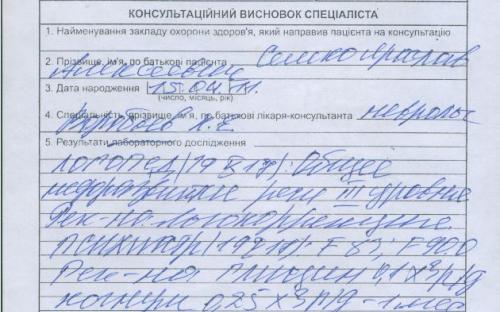 КОНСУЛЬТАЦІЙНИЙ ВИСНОВОК СПЕЦІАЛІСТА
1. Найменування закладу охорони здоров'я, який направив пацієнта на консультацію
2. Прізвище, ім'я, по батькові пацієнта Семко
Алексеевич
3. Дата народження 15.04.11.
(число, місяць, рік)
4. Спеціальність, прізвище, ім'я, по батькові лікаря-консультанта невролог
5. Результати лабораторного дослідження
логопед (19 17): Общее
недоразвитие речи II уровня
Рек-на логокоррекция
психиатр (19 17): F 83; F 90.0
Рек-на глицин 0,1 х 3 р/д
0,25 х 3 р/д - 1 мес